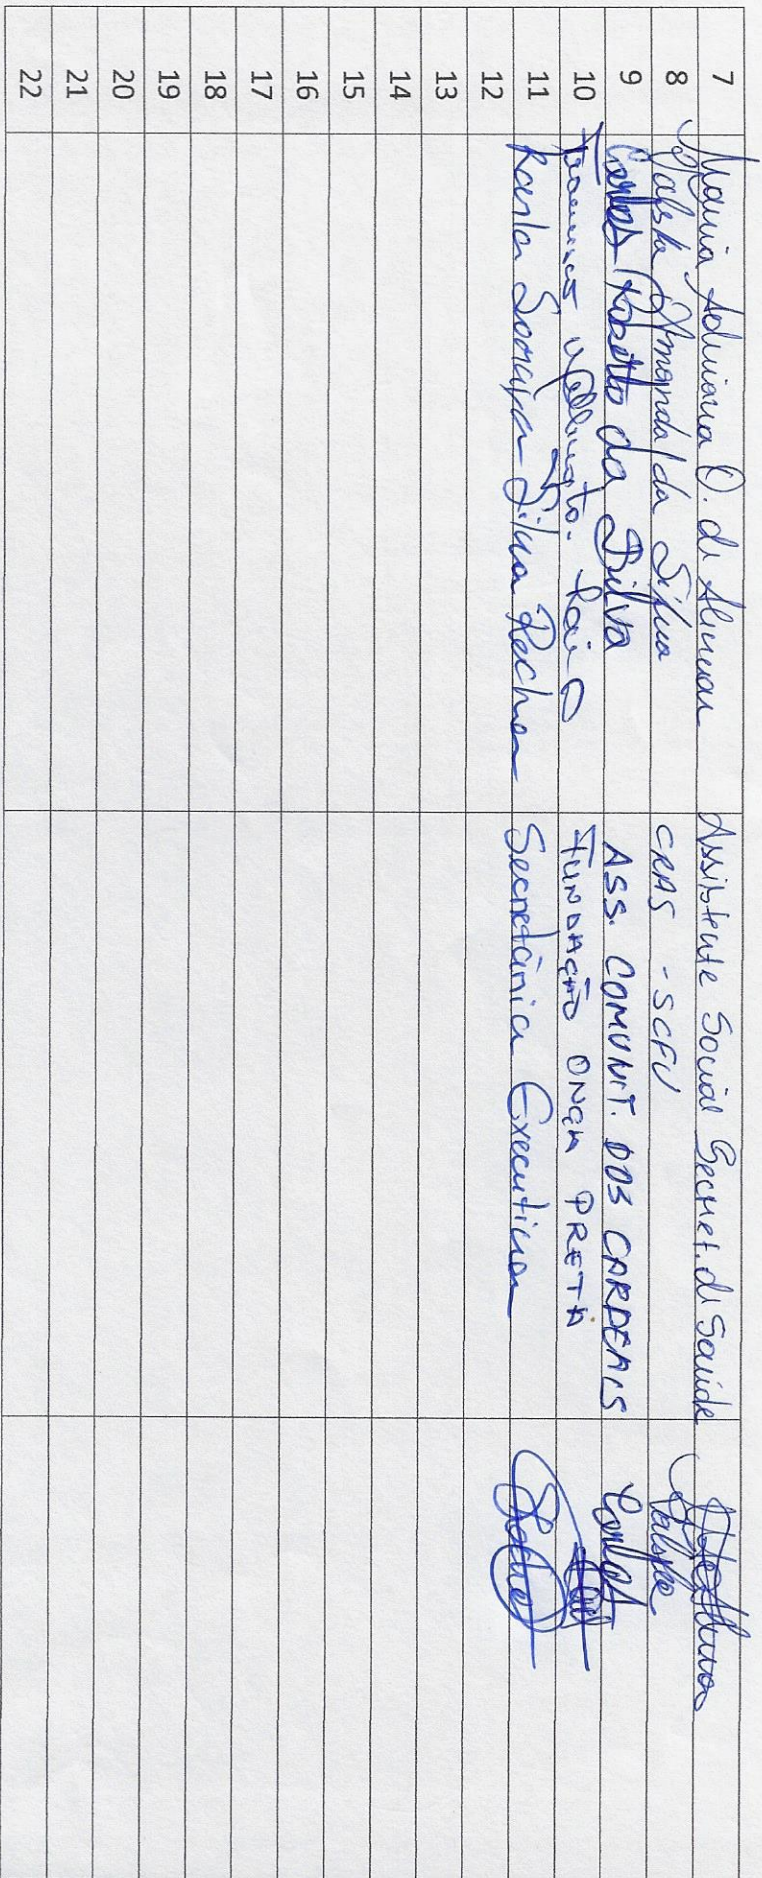 7 Maria Adriana O. de Alencar Assistente Social Secret. de Saúde
8 Amanda da Silva CRAS - SCFV
9 Carlos Roberto da Silva ASS. COMUNIT. DOS CARDEAIS Carlos
10 Francisco FUNDAÇÃO ONÇA PRETA
11 Karla Soraya Silva Rocha Secretária Executiva
12
13
14
15
16
17
18
19
20
21
22